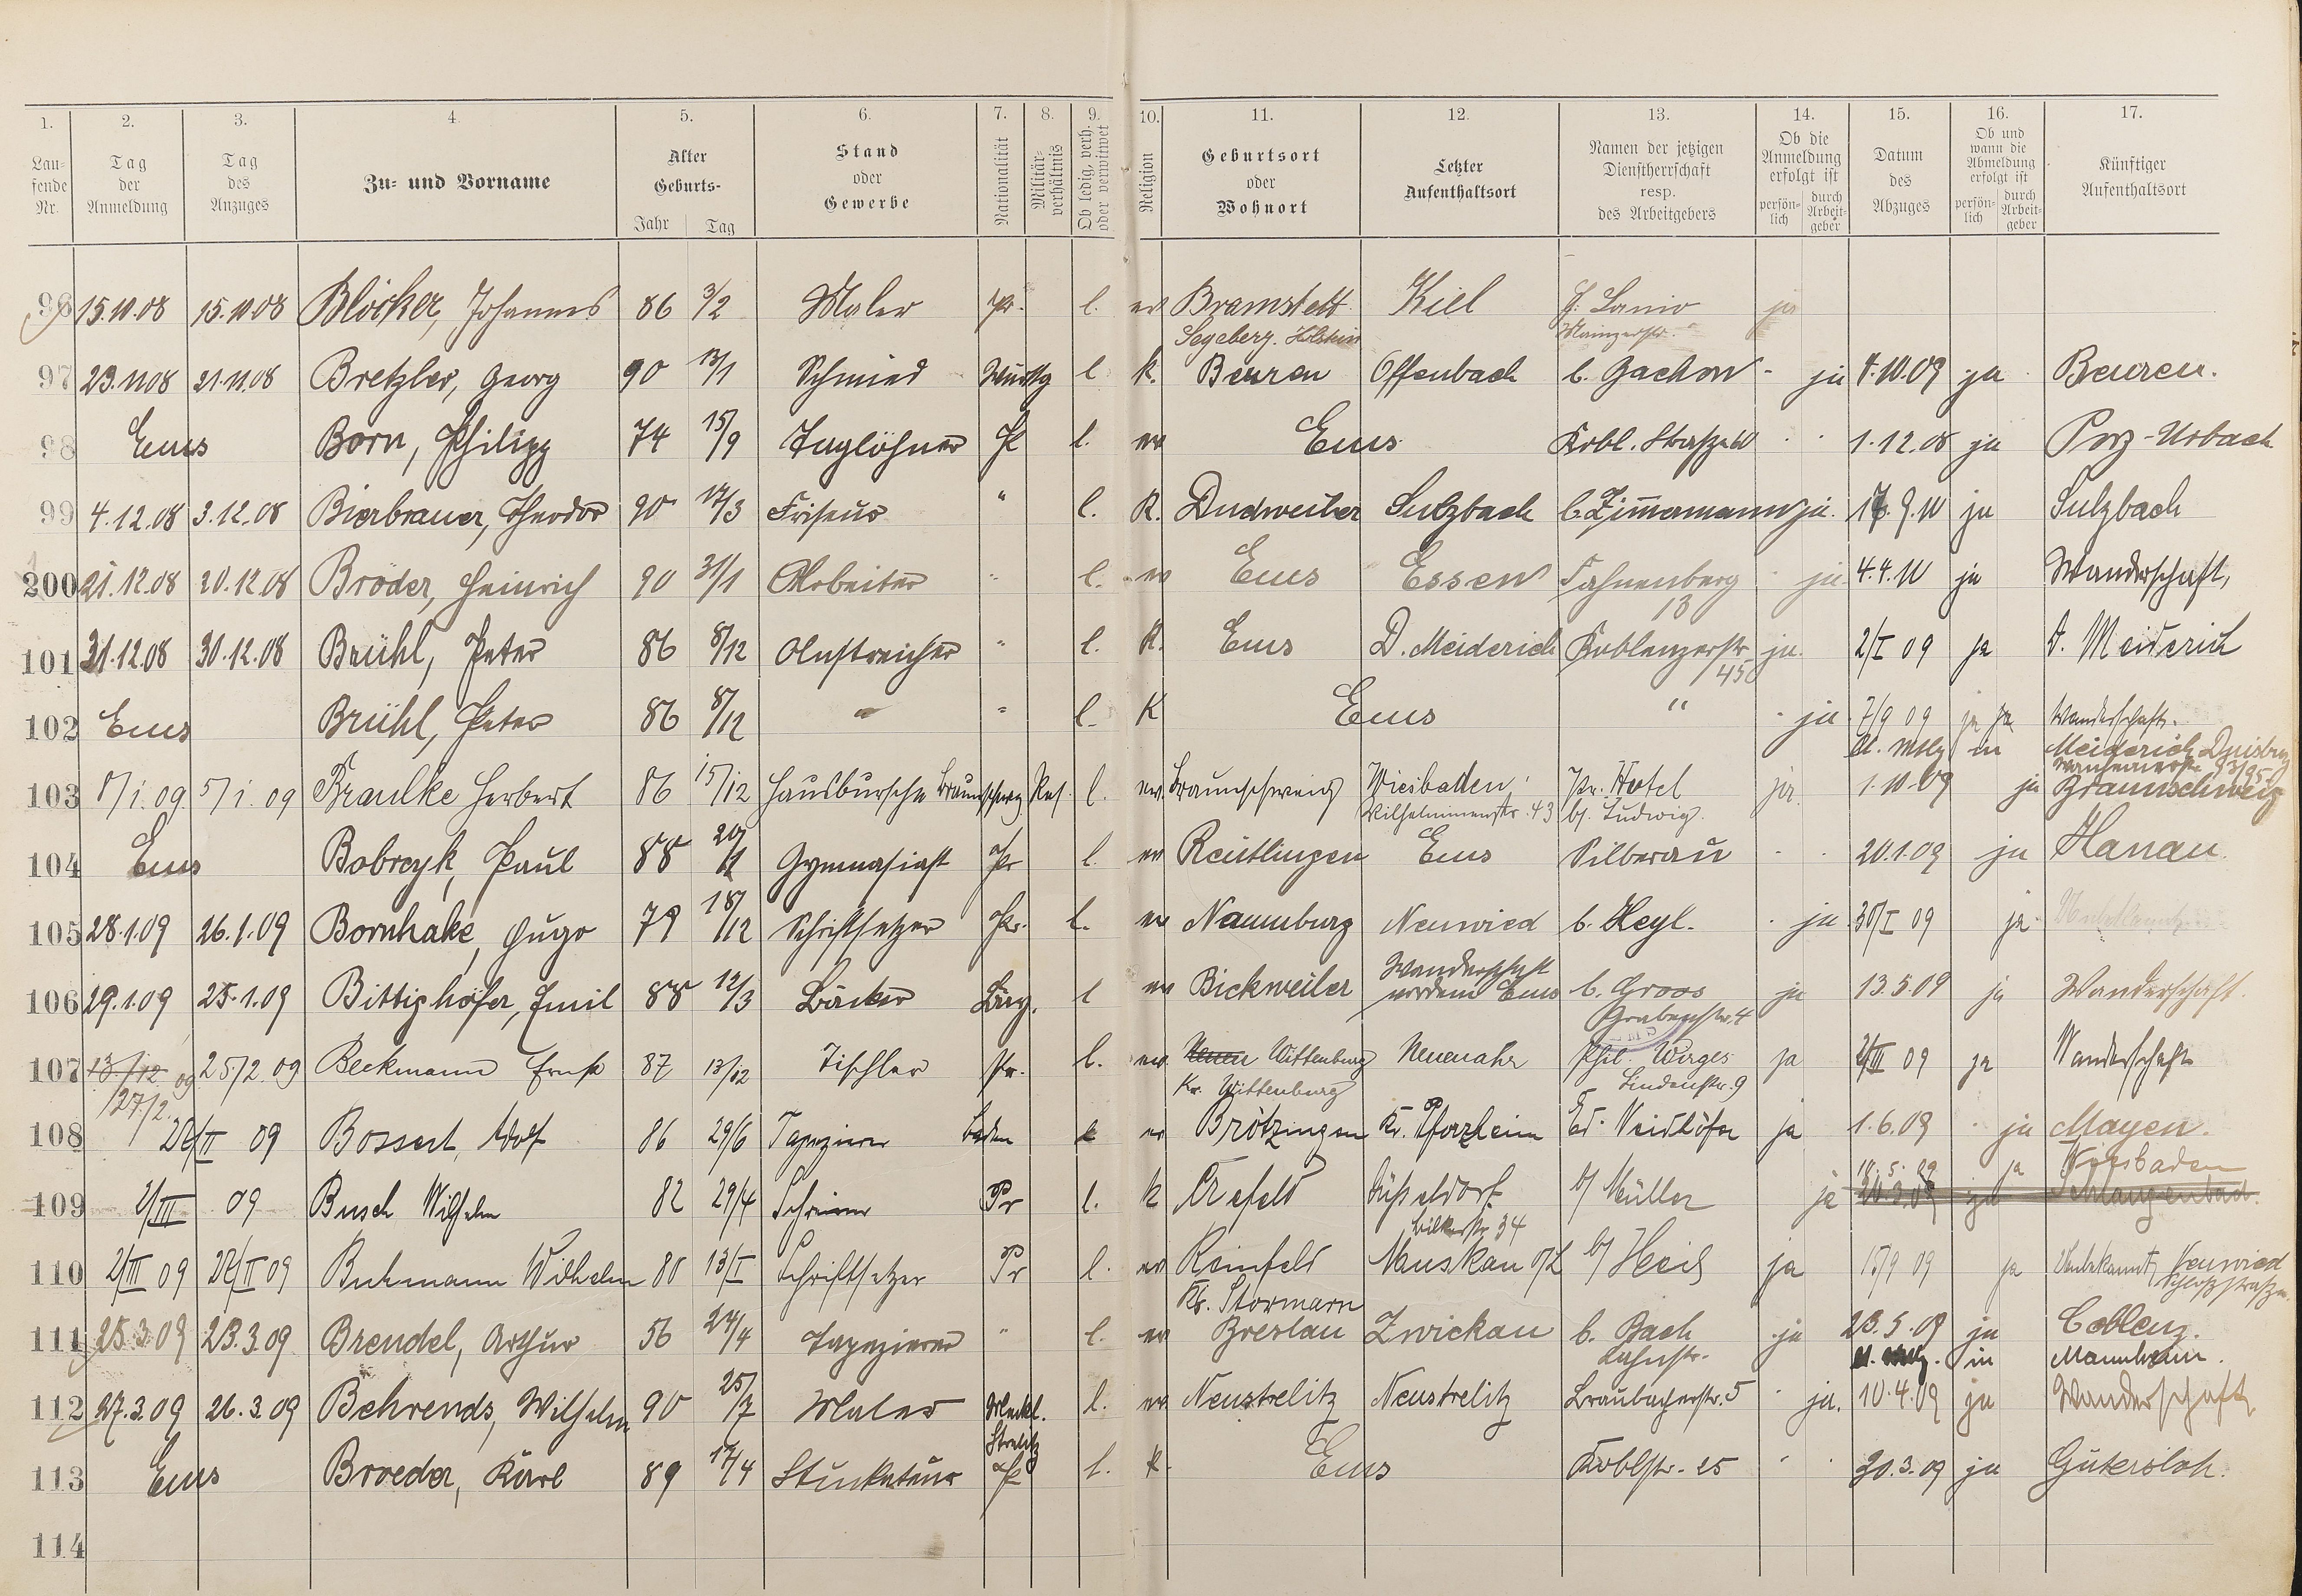 1. 2. 3. 4. 5. 6. 7. 8. 9. 10. 11. 12. 13. 14. 15. 16. 17.
Laufende Nr. | Tag der Anmeldung | Tag des Anzuges | Zu- und Vorname | Alter Geburts- Jahr Tag | Stand oder Gewerbe | Nationalität | Militärverhältnis | Ob ledig, verh. oder verwitwet | Religion | Geburtsort oder Wohnort | Letzter Aufenthaltsort | Namen der jetzigen Dienstherrschaft resp. des Arbeitgebers | Ob die Anmeldung erfolgt ist persönlich durch Arbeitgeber | Datum des Abzuges | Ob und wann die Abmeldung erfolgt ist persönlich durch Arbeitgeber | Künftiger Aufenthaltsort
96 15.11.08 15.11.08 Blöcker, Johannes 86 3/2 Maler Pr. l. ev Bramstett Kiel Lanio ja
Segeberg. Holstein Mainzerstr.
97 23.11.08 21.11.08 Bretzler, Georg 90 13/1 Schmied Württg l k. Beuren Offenbach b. Gachon ja 4.10.09 ja Beuren.
98 Ems Born, Philipp 74 15/9 Taglöhner Pr l. ev Ems Kobl. Straße 1.12.08 ja Porz-Urbach
99 4.12.08 3.12.08 Bierbrauer, Theodor 90 17/3 Friseur " l. K. Dudweiler Sulzbach b. Zimmermann ja. 9.10 ja Sulzbach
200 21.12.08 20.12.08 Bröder, Heinrich 90 31/1 Arbeiter " l. ev Ems Essen Fahnenberg ja 4.4.10 ja Wanderschaft,
13
101 31.12.08 30.12.08 Brühl, Peter 86 8/12 Anstreicher " l. K. Ems D. Meiderich Koblenzerstr ja 2/I 09 ja D. Meiderich
45
102 Ems Brühl, Peter 86 8/12 " " l. K Ems " ja 7/9 09 ja ja Wanderschaft.
in Meiderich Duisburg
103 8/1.09 5/1.09 Braulke Herbert 86 15/12 Hausbursche Braunschweg. l. ev. Braunschweig Wiesbaden, Pr. Hotel ja. 1.10.09 ja Braunschweig
Wilhelminenstr. 43 bj. Ludwig.
104 Ems Bobrcyk, Paul 88 20/ Gymnasiast Pr l. ev Reutlingen Ems Silberau 20.1.09 ja Hanau.
105 28.1.09 26.1.09 Bornhake, Hugo 79 18/12 Schriftsetzer Pr. l. ev Naumburg Neuwied b. Heyl. ja 30/I 09 ja
106 29.1.09 25.1.09 Bittighofer, Emil 88 12/3 Bäcker l ev Bickweiler Wanderschaft b. Groos ja 13.5.09 ja Wanderschaft.
vordem Ems Grabenstr. 4
107 13./12 09 25/2 09 Beckmann Ernst 87 13/12 Tischler Pr. l. ev. Wittenburg Neuenahr Phil. Wirges ja 2/III 09 ja Wanderschaft
27/2. Kr. Wittenburg Lindenstr. 9
108 28/II 09 Bossert, Adolf 86 29/6 Tapezierer Baden ev Brötzingen Kr. Pforzheim Ed. Neidhöfer ja 1.6.09 ja Mayen.
18.5.09 ja Wiesbaden
109 2/III 09 Busch Wilhelm 82 29/4 Schreiner Pr l. k Crefeld Düsseldorf bj Müller ja 20.3.09 ja Schlangenbad.
Bilkerstr 34
110 2/III 09 28/II 09 Buhmann Wilhelm 80 13/I Schriftsetzer Pr l. ev Reinfeld Muskau O/L bj Heil ja 15/9 09 ja Unbekannt, Neuwied
Kr. Stormarn Schloßstraße
111 25.3.09 23.3.09 Brendel, Arthur 56 24/4 Tapezierer " l. ev Breslau Zwickau b. Bach ja 23.5.09 ja Coblenz.
Lahnstr. in Mannheim.
112 27.3.09 26.3.09 Behrends, Wilhelm 90 25/7 Maler Meckl. l. ev. Neustrelitz Neustrelitz Braubacherstr. 5 ja. 10.4.09 ja Wanderschaft
Strelitz
113 Ems Broeder, Karl 89 17/4 Stuckateur Pr l. k. Ems Koblstr. 25 30.3.09 ja Gütersloh.
114